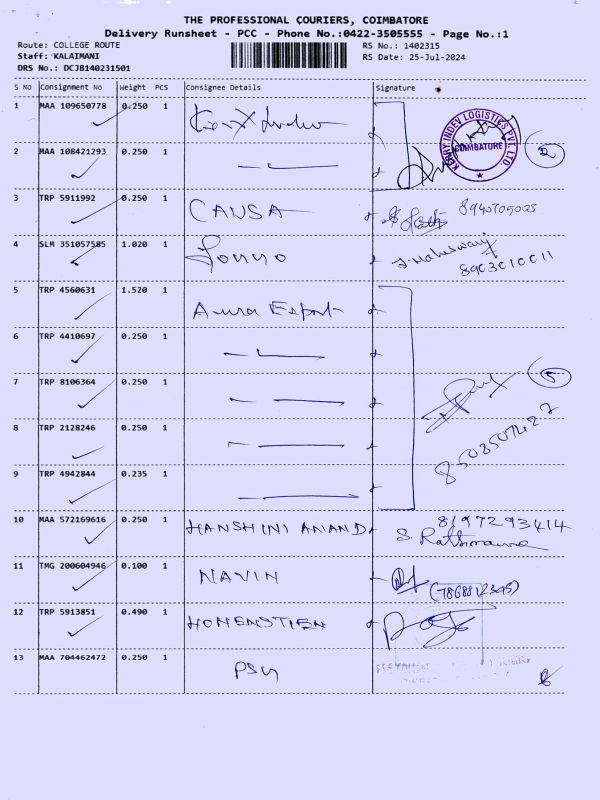 THE PROFESSIONAL COURIERS, COIMBATORE
Delivery Runsheet - PCC - Phone No.:0422-3505555 - Page No.:1
Route: COLLEGE ROUTE
RS No.: 1402315
Staff: KALAIMANI
RS Date: 25-Jul-2024
DRS No.: DCJB140231501
S No Consignment No Weight PCS Consignee Details Signature
1 MAA 109650778 0.250 1
KERRY INDEV LOGISTICS PVT. LTD. COIMBATORE
2 MAA 108421293 0.250 1 2
3 TRP 5911992 0.250 1 CAUSA
4 SLM 351057585 1.020 1
8903010011
5 TRP 4560631 1.520 1
6 TRP 4410697 0.250 1
7 TRP 8106364 0.250 1 5
8 TRP 2128246 0.250 1
9 TRP 4942844 0.235 1
10 MAA 572169616 0.250 1 HANSHINI ANAND 8197293414
11 TMG 200604946 0.100 1 NAVIN
12 TRP 5913851 0.490 1 HOHENSTIEN
13 MAA 704462472 0.250 1 PSG